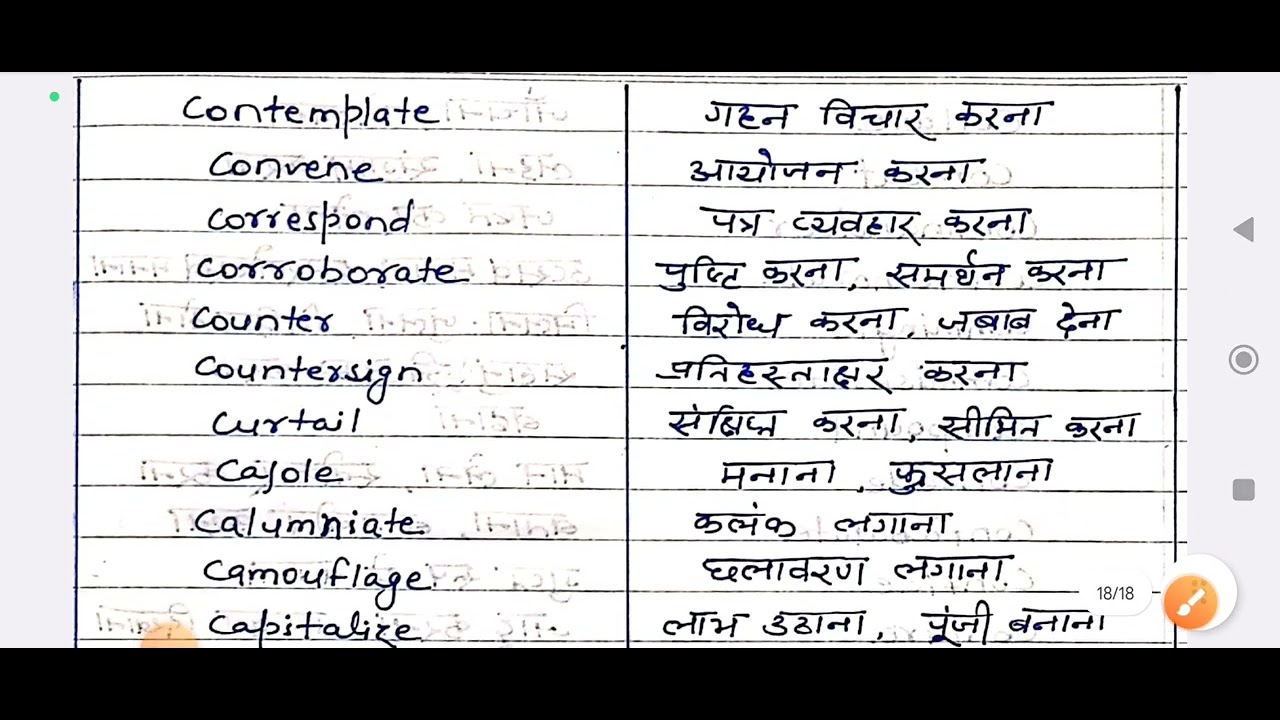 Contemplate गहन विचार करना
Convene आयोजन करना
Correspond पत्र व्यवहार करना
Corroborate पुष्टि करना, समर्थन करना
Counter विरोध करना, जबाब देना
Countersign प्रतिहस्ताक्षर करना
Curtail संक्षिप्त करना, सीमित करना
Cajole मनाना, फुसलाना
Calumniate कलंक लगाना
Camouflage छलावरण लगाना
18/18
Capitalize लाभ उठाना, पूंजी बनाना